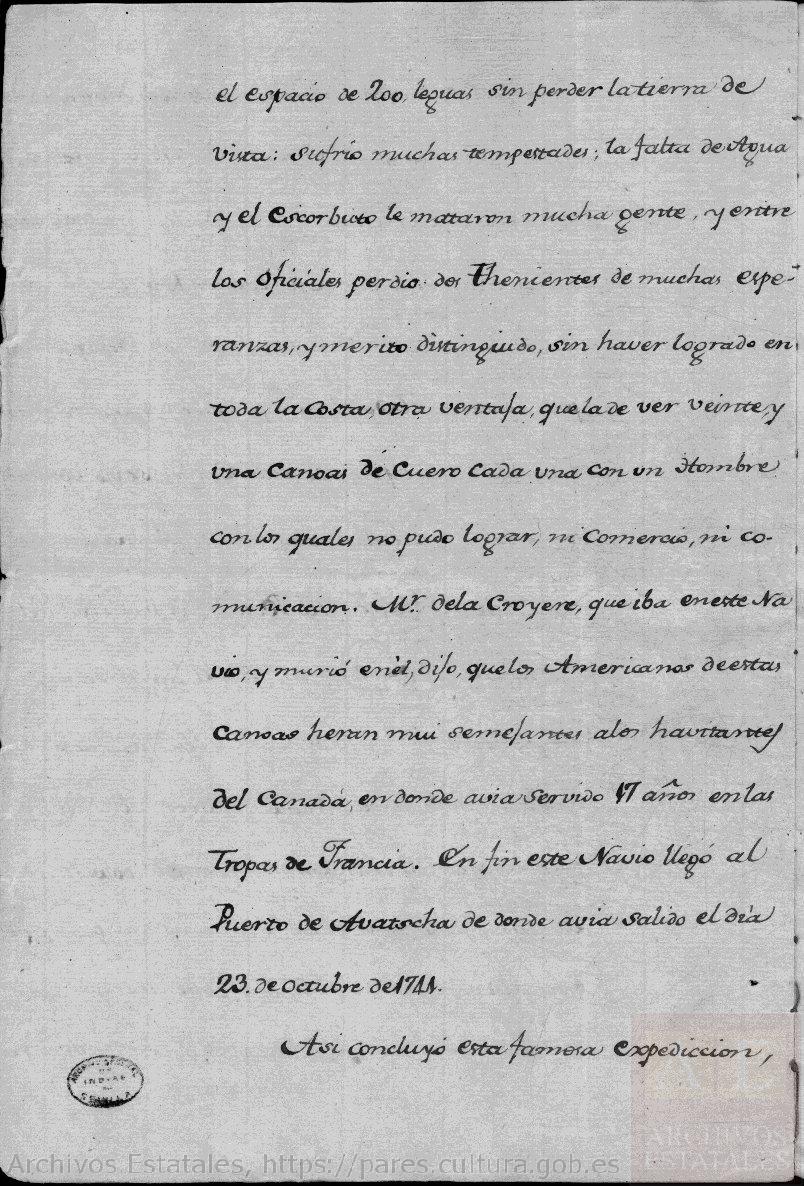 el espacio de 200, leguas sin perder la tierra de
vista: sufrió muchas tempestades; la falta de Agua
y el Escorbuto le mataron mucha gente, y entre
los oficiales perdio dos Thenientes de muchas espe-
ranzas, y merito distinguido, sin haver logrado en
toda la costa, otra ventaja, que la de ver veinte, y
una Canoas de Cuero cada una con un Hombre
con los quales no pudo lograr, ni Comercio, ni co-
municacion. Mr. dela Croyere, que iba en este Na
vio, y murió en èl, dijo, que los Americanos de estas
Canoas heran mui semejantes a los havitantes
del Canadá, en donde avia servido 17 años en las
Tropas de Francia. En fin este Navio llegó al
Puerto de Avatscha de donde avia salido el dia
23. de octubre de 1741.
Asi concluyó esta famosa expediccion,
ARCHIVO GENERAL
DE
INDIAS
SEVILLA
ARCHIVOS
ESTATALES
Archivos Estatales, https://pares.cultura.gob.es